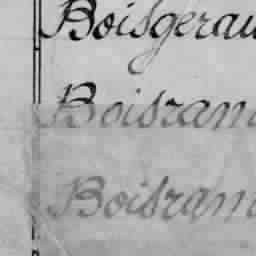 Boisgerau
Boisram
Boisram